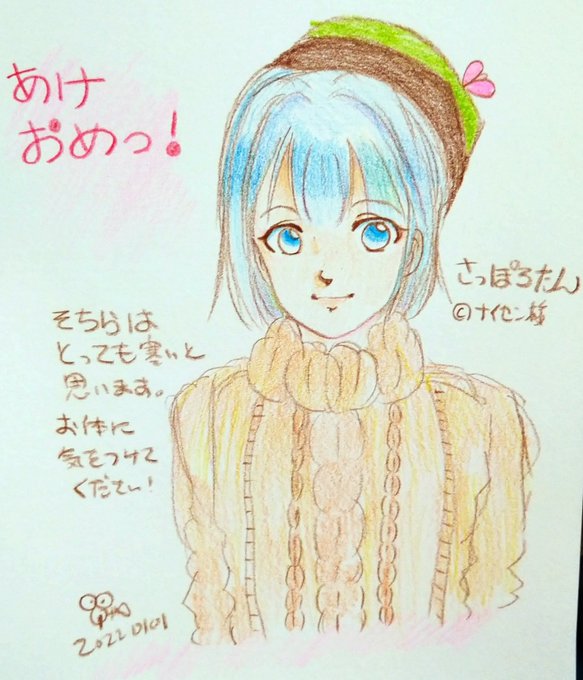 あけ
おめっ!
さっぽろたん
©ナイセン様
そちらは
とっても寒いと
思います。
お体に
気をつけて
ください!
20220101